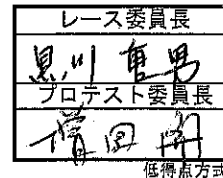 レース委員長
黒川 重男
プロテスト委員長
増田 開
低得点方式